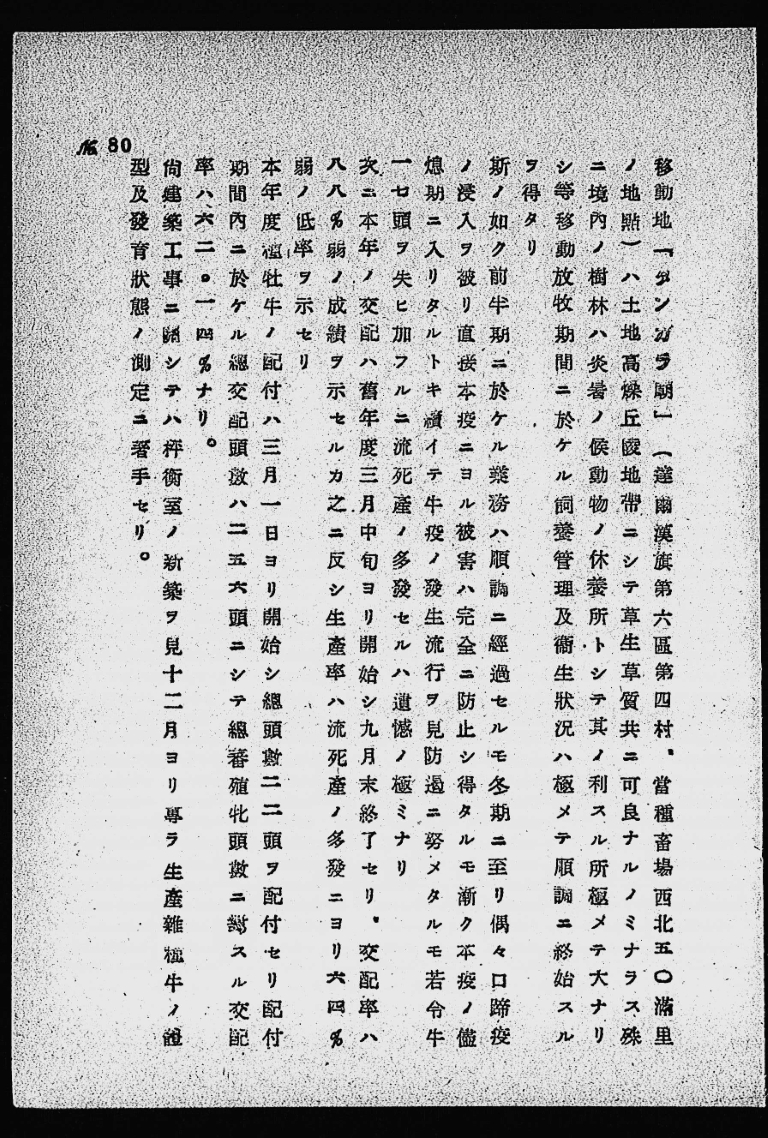 № 80
移動地「タンガラ廟」（達爾漢旗第六區第四村、當種畜場西北五〇滿里
ノ地點）ハ土地高燥丘陵地帶ニシテ草生草質共ニ可良ナルノミナラス殊
ニ境內ノ樹林ハ炎暑ノ候動物ノ休養所トシテ其ノ利スル所極メテ大ナリ
シ等移動放牧期間ニ於ケル飼養管理及衞生狀況ハ極メテ順調ニ終始スル
ヲ得タリ
斯ノ如ク前半期ニ於ケル業務ハ順調ニ經過セルモ冬期ニ至リ偶々口蹄疫
ノ浸入ヲ被リ直接本疫ニヨル被害ハ完全ニ防止シ得タルモ漸ク本疫ノ儘
熄期ニ入リタルトキ續イテ牛疫ノ發生流行ヲ見防遏ニ努メタルモ若令牛
一七頭ヲ失ヒ加フルニ流死產ノ多發セルハ遺憾ノ極ミナリ
次ニ本年ノ交配ハ舊年度三月中旬ヨリ開始シ九月末終了セリ、交配率ハ
八八％弱ノ成績ヲ示セルカ之ニ反シ生產率ハ流死產ノ多發ニヨリ六四％
弱ノ低率ヲ示セリ
本年度種牡牛ノ配付ハ三月一日ヨリ開始シ總頭數二二頭ヲ配付セリ配付
期間內ニ於ケル總交配頭數ハ二五六頭ニシテ總蕃殖牝頭數ニ對スル交配
率ハ六二。一四％ナリ。
尙建築工事ニ關シテハ秤衡室ノ新築ヲ見十二月ヨリ專ラ生產雜種牛ノ體
型及發育狀態ノ測定ニ著手セリ。